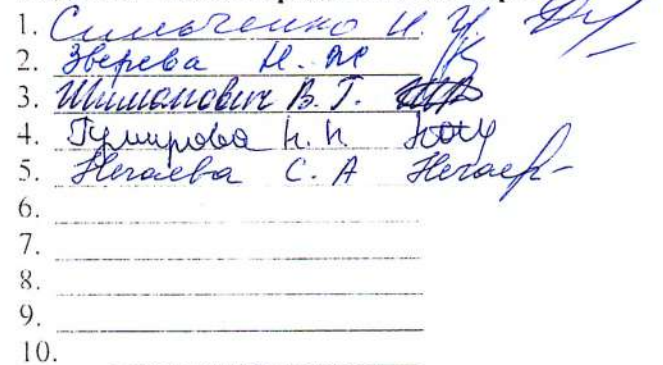 1. Сильченко И. У.
2. Зверева Н. М
3. Шиманович В. Г.
4. Н. Н
5. Негаева С. А Негаев
6.
7.
8.
9.
10.